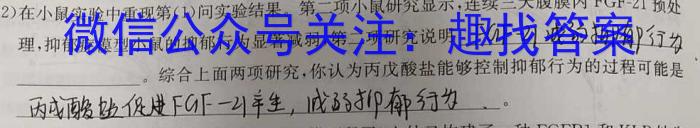 2)在小鼠实验中重现第(1)问实验结果。第二项小鼠研究显示,连续三天腹膜内FGF-21预处
理,抑郁 模型小鼠的抑郁行为显著减弱,第二项研究说明 抑郁行为
微信公众号关注:趣找答案
。综合上面两项研究,你认为丙戊酸盐能够控制抑郁行为的过程可能是
丙戊酸盐促进FGF-21产生,减弱抑郁行为。
FGFR1